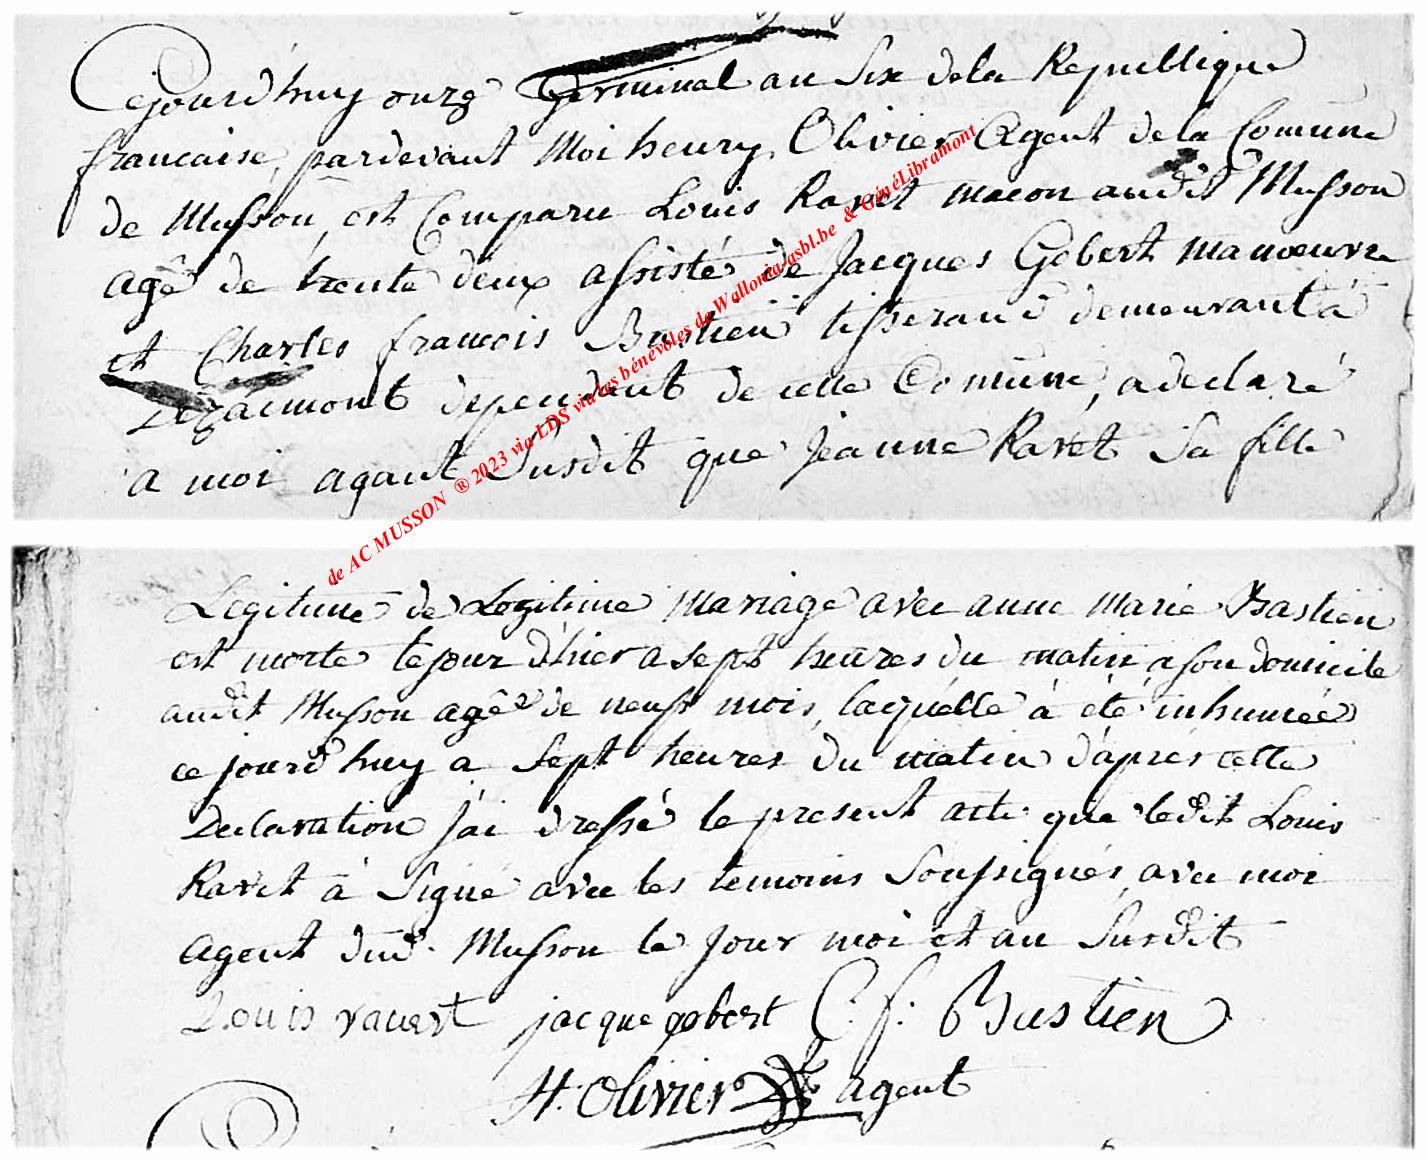 Cejourd'huy onze Germinal an Six de la Republique
francaise, pardevant Moi henry Olivier Agent de la Comune
de Musson, est Comparu Louis Ravet macon audit Musson
agé de trente deux assisté de Jacques Gobert manoeuvre
et Charles francois Bastien tisserand demeurant à
dependant de cette Comune, a declaré
a moi agant Susdit que Jeanne Ravet Sa fille
de AC MUSSON ® 2023 via LDS via les bénévoles de Wallonia-asbl.be & GénéLibramont
Legitime de Legitime Mariage avec anne Marie Bastien
est morte le jour d'hier a sept heures du matin a son domicile
audit Musson agée de neuf mois, laquelle à été inhumée
ce jourd'huy a Sept heures du matin d'aprés cette
Declaration j'ai dressé le present acte que ledit Louis
Ravet à Signé avec les temoins Soussignés avec moi
agent dud. Musson le Jour moi et an Susdit
Louis ravert jacque gobert C. f. Bastien
H. Olivier agent